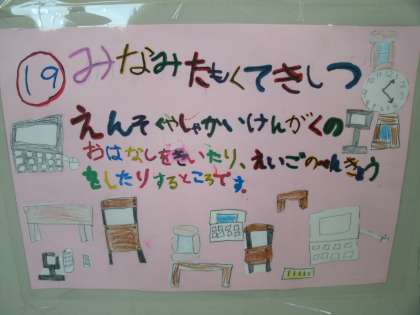 19 みなみたもくてきしつ
えんそくやしゃかいけんがくの
おはなしをきいたり、えいごのべんきょう
をしたりするところです。